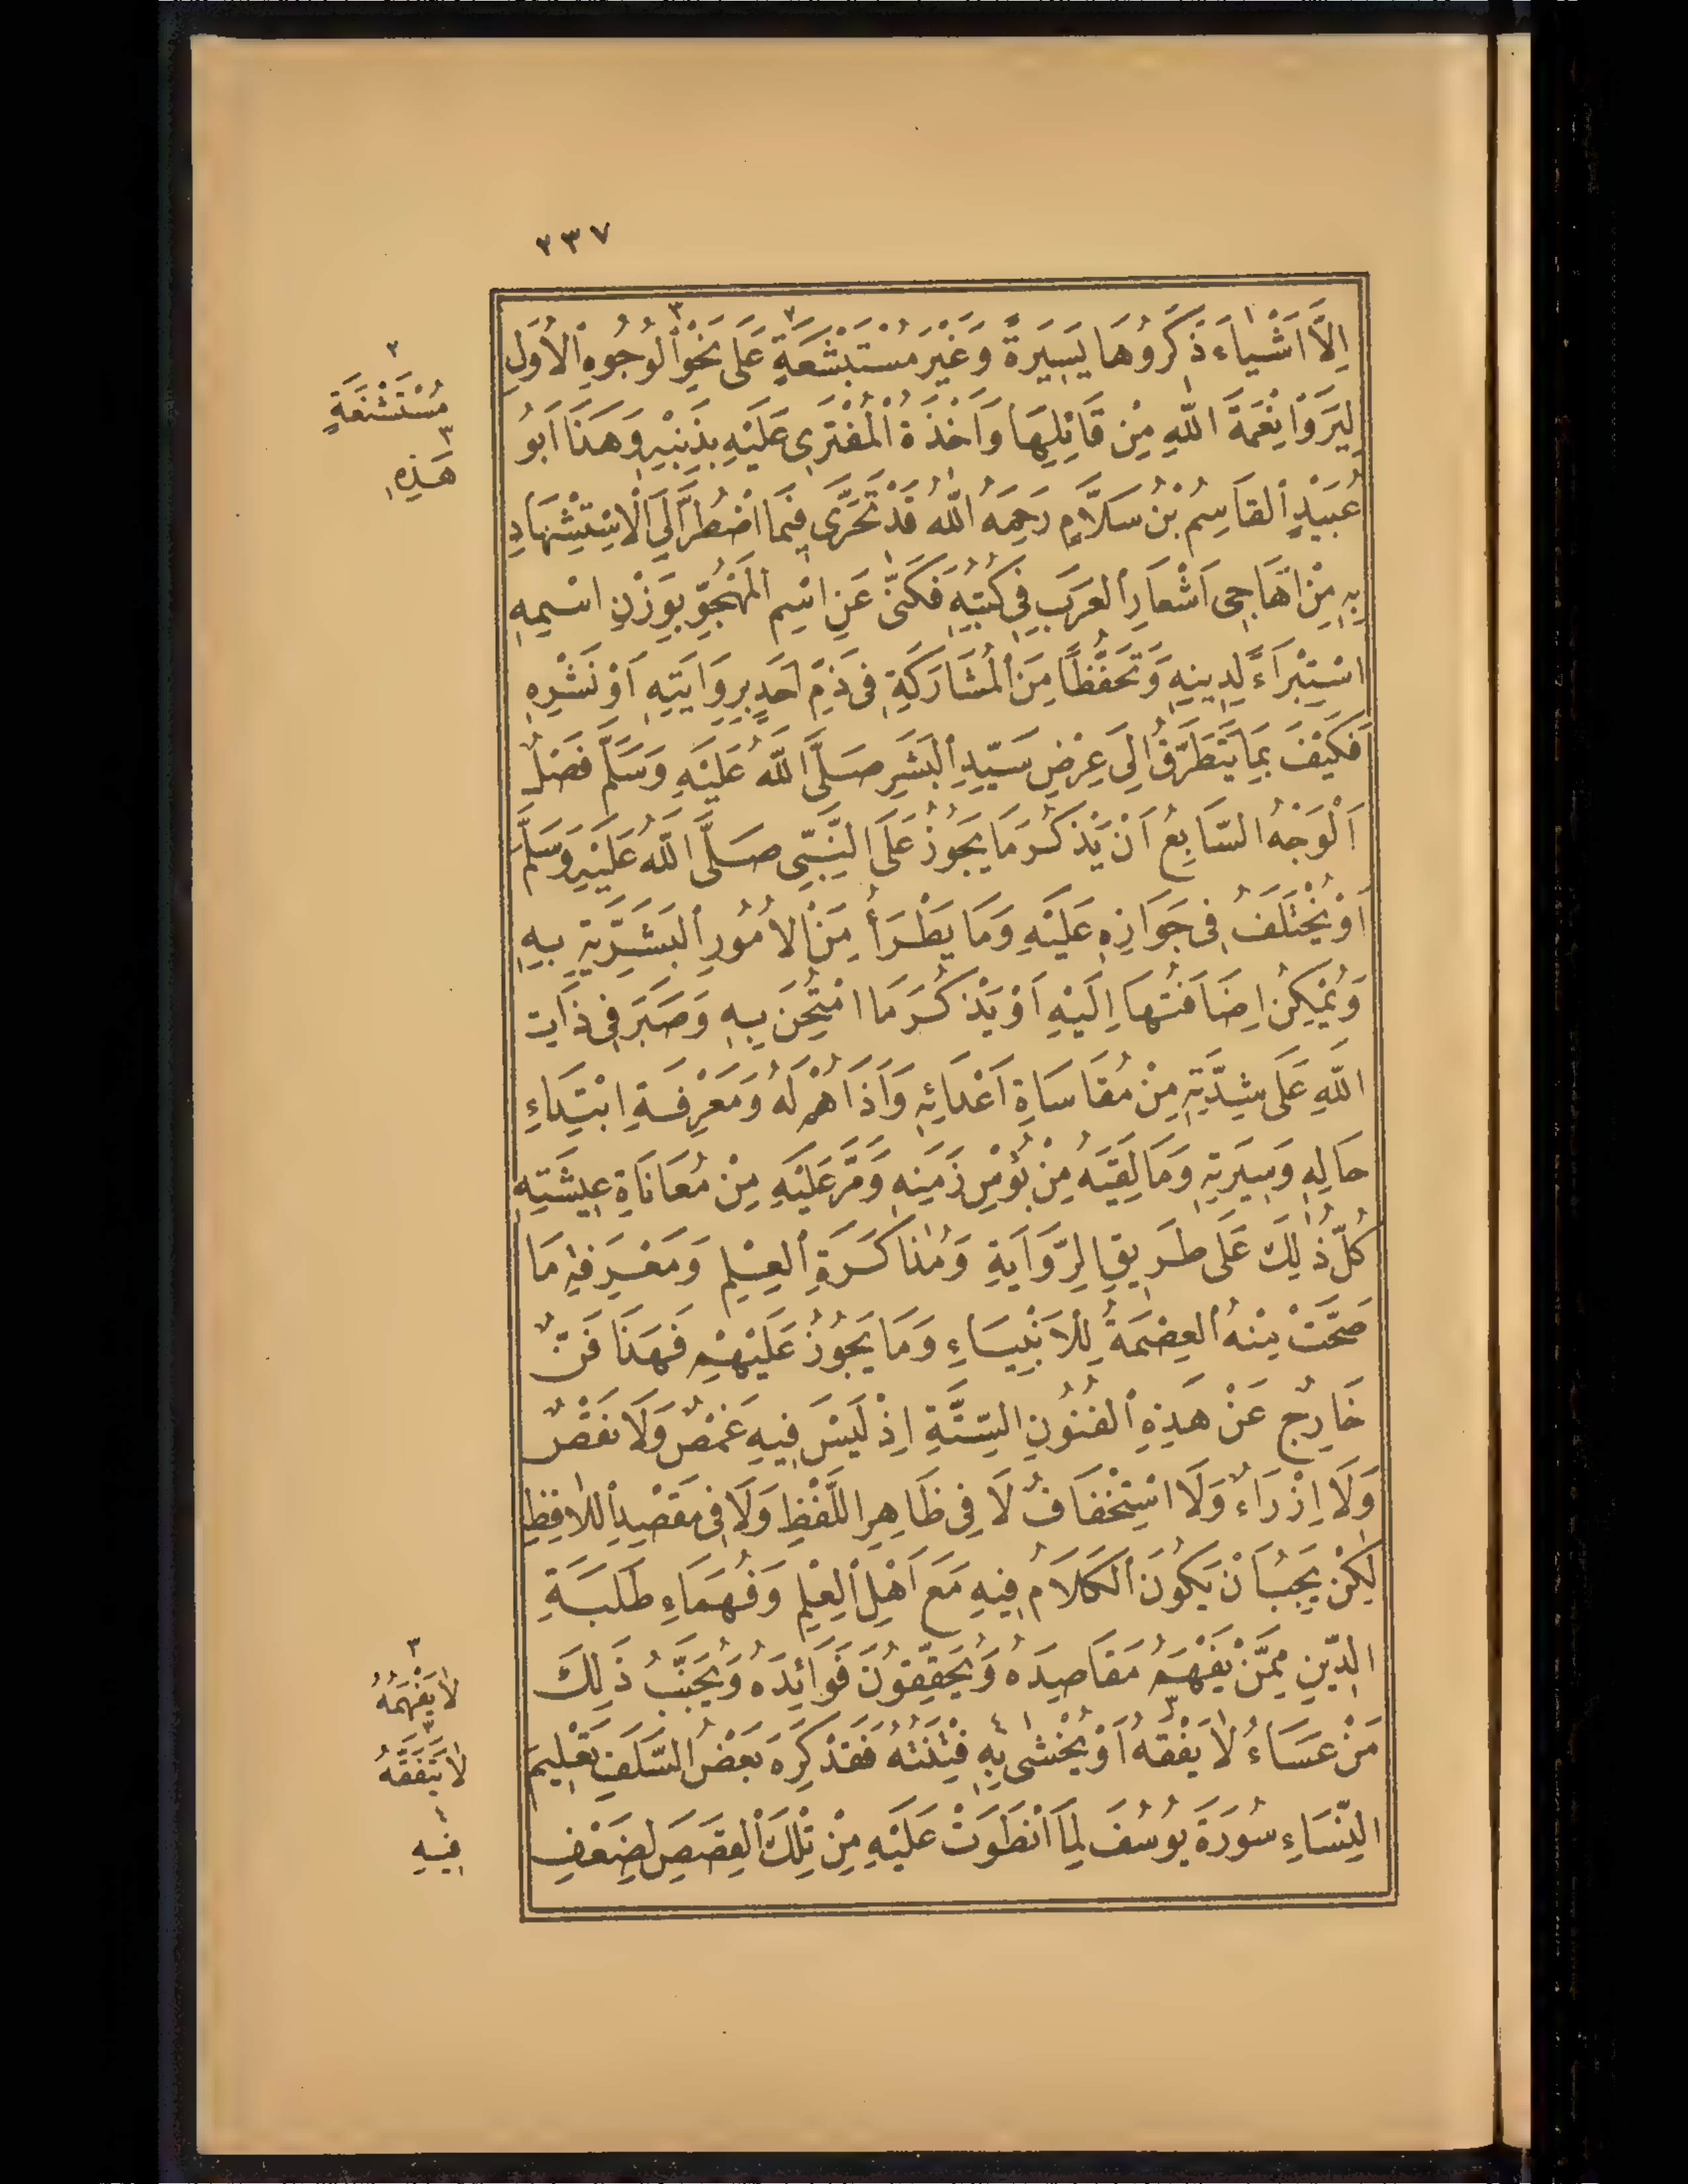 ٢٣٧
اِلَّا اَشْيَاءَ ذَكَرُوهَا يَسِيرَةً وَغَيْرَ مُسْتَبْشَعَةٍ عَلَى نَحْوِ الْوُجُوهِ الْاُوَلِ
لِيَرَوْا نِقْمَةَ اللّٰهِ مِنْ قَائِلِهَا وَاَخْذَهُ الْمُفْتَرِى عَلَيْهِ بِذَنْبِهِ وَهَذَا اَبُو
عُبَيْدٍ الْقَاسِمُ بْنُ سَلَّامٍ رَحِمَهُ اللّٰهُ قَدْ تَحَرَّى فِيمَا اضْطُرَّ اِلَى الْاِسْتِشْهَادِ
بِهِ مِنْ اَهَاجِى اَشْعَارِ الْعَرَبِ فِى كُتُبِهِ فَكَنَّى عَنِ اسْمِ الْمَهْجُوِّ بِوَزْنِ اسْمِهِ
اسْتِبْرَاءً لِدِينِهِ وَتَحَفُّظًا مِنَ الْمُشَارَكَةِ فِى ذَمِّ اَحَدٍ بِرِوَايَتِهِ اَوْ نَشْرِهِ
فَكَيْفَ بِمَا يَتَطَرَّقُ اِلَى عِرْضِ سَيِّدِ الْبَشَرِ صَلَّى اللّٰهُ عَلَيْهِ وَسَلَّمَ فَصْلٌ
اَلْوَجْهُ السَّابِعُ اَنْ يَذْكُرَ مَا يَجُوزُ عَلَى النَّبِىِّ صَلَّى اللّٰهُ عَلَيْهِ وَسَلَّمَ
اَوْ يُخْتَلَفُ فِى جَوَازِهِ عَلَيْهِ وَمَا يَطْرَأُ مِنَ الْاُمُورِ الْبَشَرِيَّةِ بِهِ
وَيُمْكِنُ اِضَافَتُهَا اِلَيْهِ اَوْ يَذْكُرَ مَا امْتُحِنَ بِهِ وَصَبَرَ فِى ذَاتِ
اللّٰهِ عَلَى شِدَّتِهِ مِنْ مُقَاسَاةِ اَعْدَائِهِ وَاَذَاهُمْ لَهُ وَمَعْرِفَةِ ابْتِدَاءِ
حَالِهِ وَسِيرَتِهِ وَمَا لَقِيَهُ مِنْ بُؤْسِ زَمَنِهِ وَمَرَّ عَلَيْهِ مِنْ مُعَانَاةِ عِيشَتِهِ
كُلُّ ذٰلِكَ عَلَى طَرِيقِ الرِّوَايَةِ وَمُذَاكَرَةِ الْعِلْمِ وَمَعْرِفَةِ مَا
صَحَّتْ مِنْهُ الْعِصْمَةُ لِلْاَنْبِيَاءِ وَمَا يَجُوزُ عَلَيْهِمْ فَهَذَا فَنٌّ
خَارِجٌ عَنْ هَذِهِ الْفُنُونِ السِّتَّةِ اِذْ لَيْسَ فِيهِ غَمْصٌ وَلَا نَقْصٌ
وَلَا اِزْرَاءٌ وَلَا اسْتِخْفَافٌ لَا فِى ظَاهِرِ اللَّفْظِ وَلَا فِى مَقْصِدِ اللَّافِظِ
لٰكِنْ يَجِبُ اَنْ يَكُونَ الْكَلَامُ فِيهِ مَعَ اَهْلِ الْعِلْمِ وَفُهَمَاءِ طَلَبَةِ
الدِّينِ مِمَّنْ يَفْهَمُ مَقَاصِدَهُ وَيُحَقِّقُونَ فَوَائِدَهُ وَيُجَنَّبُ ذَلِكَ
مَنْ عَسَاهُ لَا يَفْقَهُ اَوْ يُخْشَى بِهِ فِتْنَتُهُ فَقَدْ كَرِهَ بَعْضُ السَّلَفِ تَعْلِيمَ
النِّسَاءِ سُورَةَ يُوسُفَ لِمَا انْطَوَتْ عَلَيْهِ مِنْ تِلْكَ الْقِصَصِ لِضَعْفِ
٢
مُسْتَشْنَعَةٍ
٣
هَذِهِ
٣
لَا يَفْهَمُهُ
٣
لَا يَتَفَقَّهُ
٤
فِيهِ